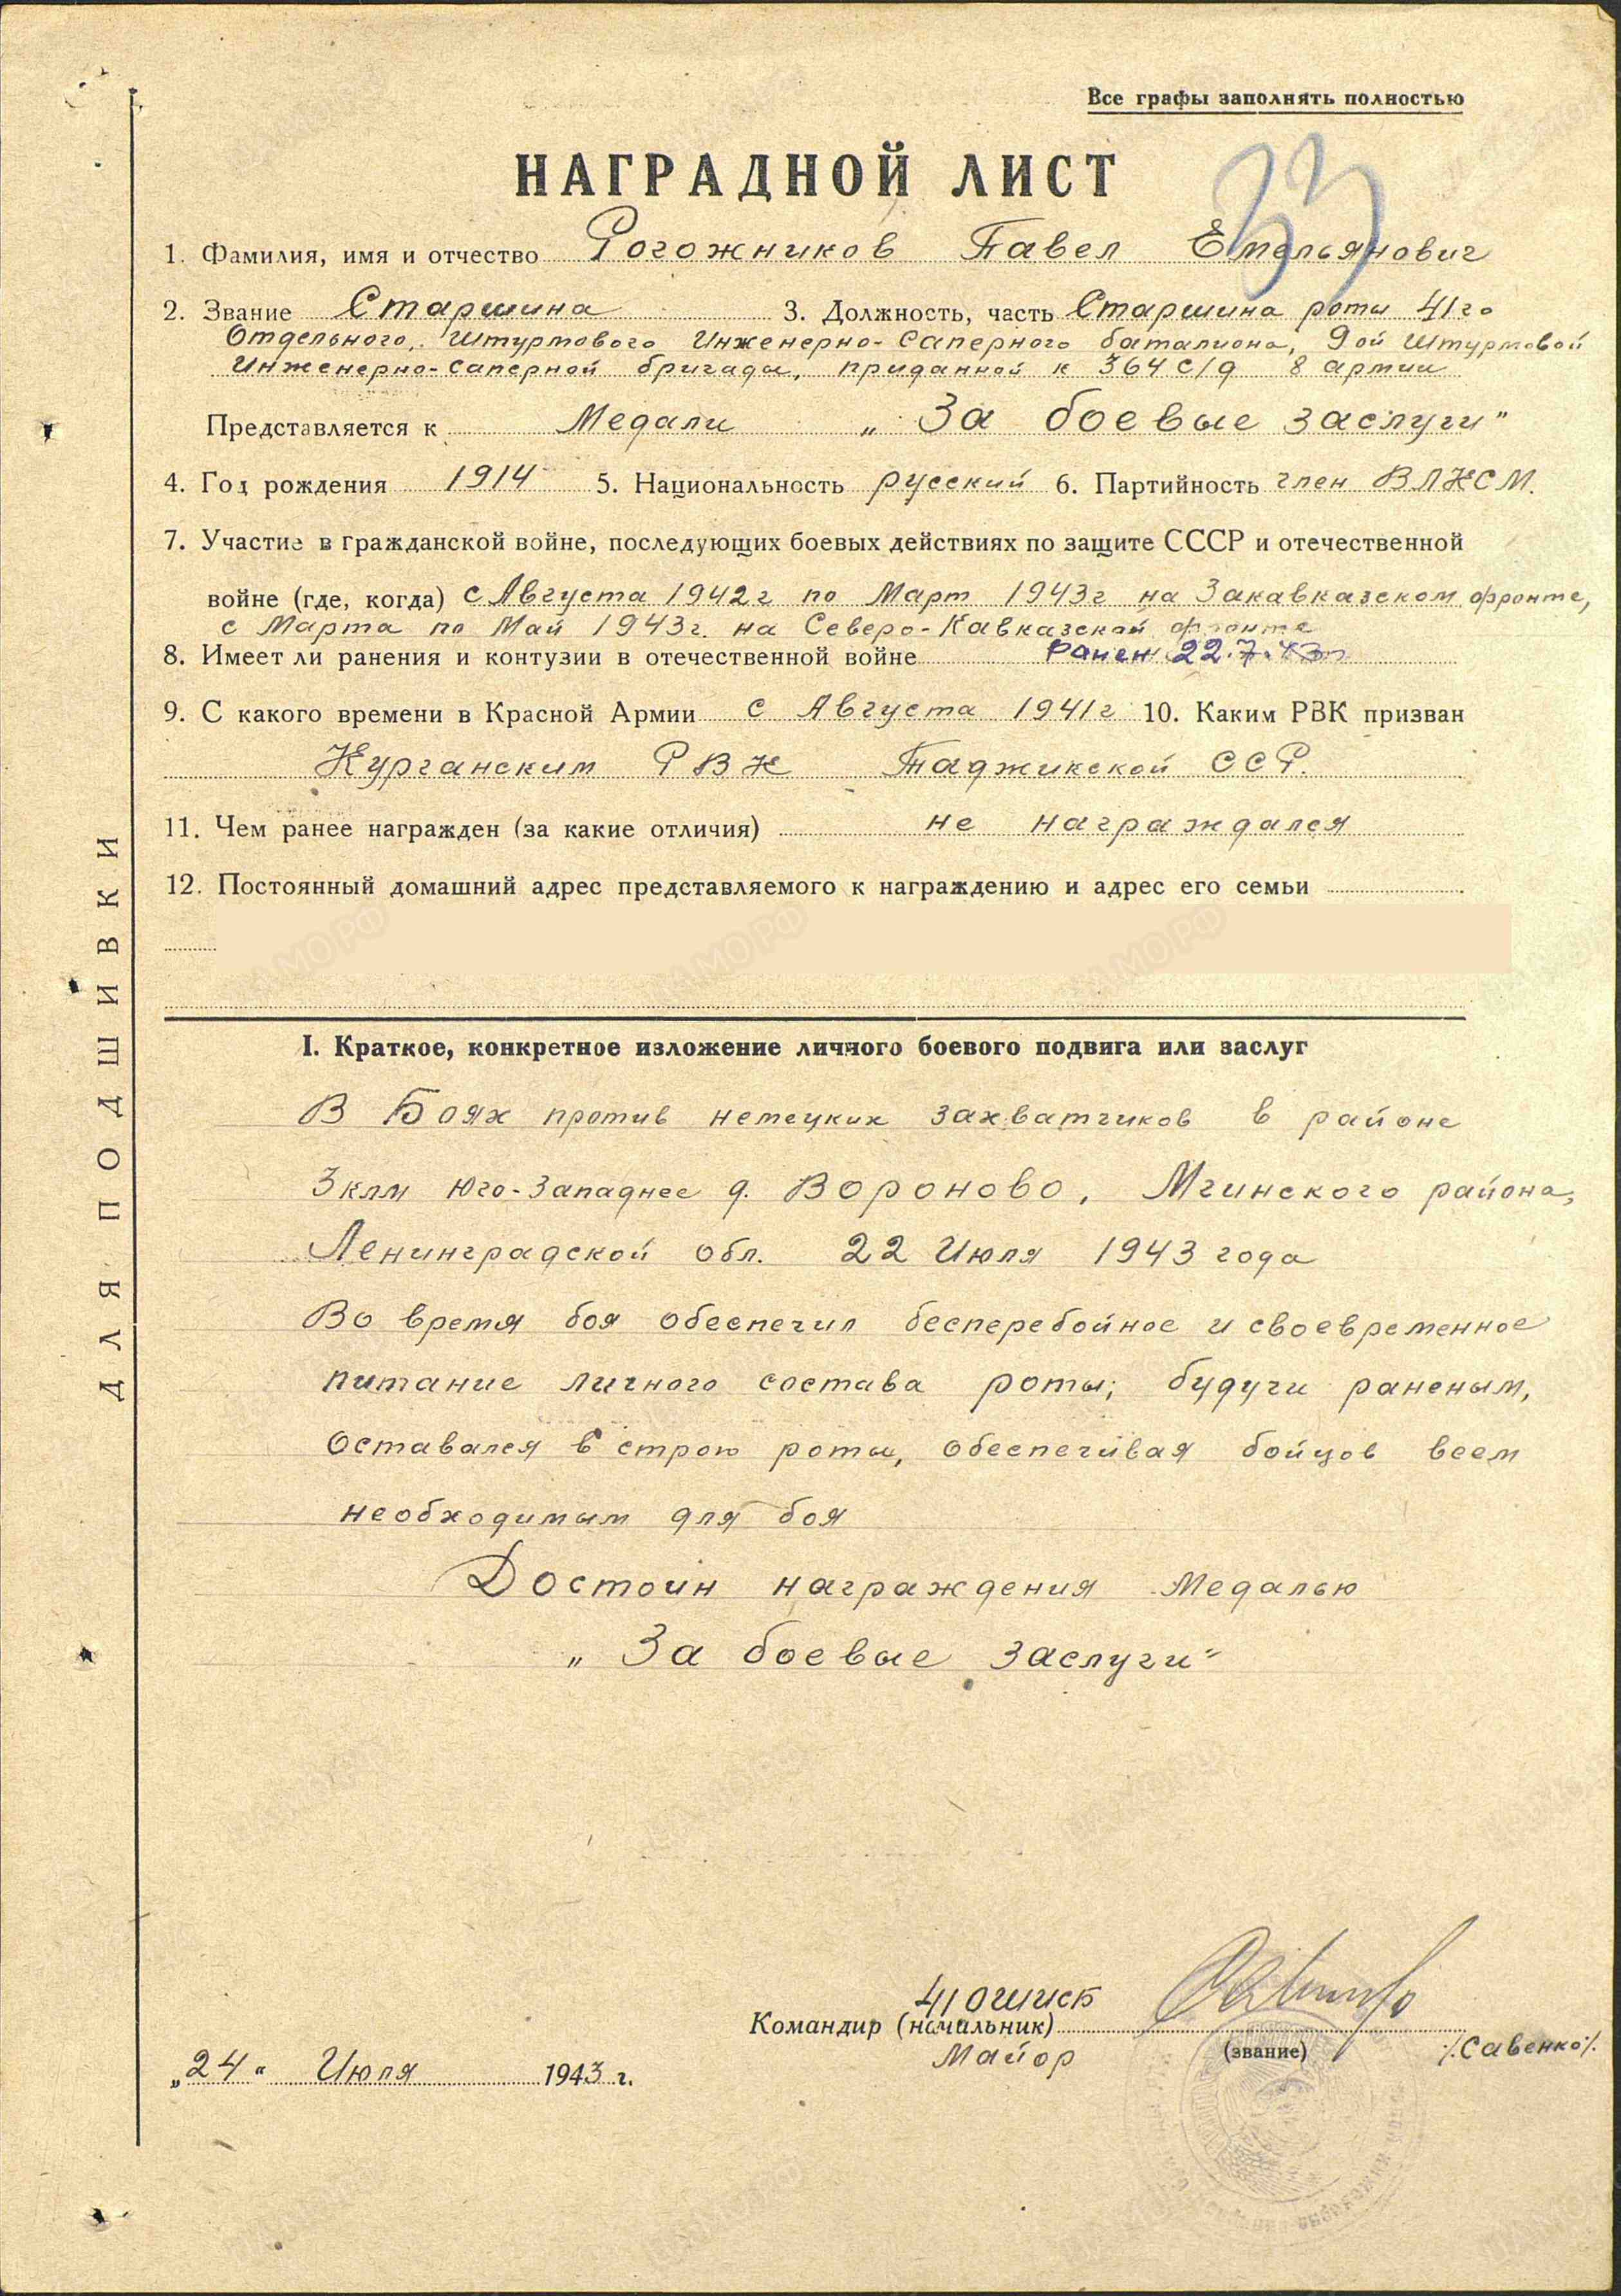 Все графы заполнять полностью
33
НАГРАДНОЙ ЛИСТ
1. Фамилия, имя и отчество Рогожников Павел Емельянович
2. Звание Старшина 3. Должность, часть Старшина роты 41го
Отдельного, Штурмового Инженерно-Саперного баталиона, 9ой Штурмовой
Инженерно-Саперной бригады, приданной к 364 с/д 8 армии
Представляется к Медали „За боевые заслуги"
4. Год рождения 1914 5. Национальность русский 6. Партийность член ВЛКСМ.
7. Участие в гражданской войне, последующих боевых действиях по защите СССР и отечественной
войне (где, когда) с Августа 1942г по Март 1943г на Закавказском фронте,
с Марта по Май 1943г. на Северо-Кавказской фронте
8. Имеет ли ранения и контузии в отечественной войне Ранен 22.7.43г
9. С какого времени в Красной Армии с Августа 1941г 10. Каким РВК призван
Курганским РВК Таджикской ССР.
11. Чем ранее награжден (за какие отличия) не награждался
12. Постоянный домашний адрес представляемого к награждению и адрес его семьи
I. Краткое, конкретное изложение личного боевого подвига или заслуг
В Боях против немецких захватчиков в районе
3 клм Юго-Западнее д. Вороново, Мгинского района,
Ленинградской обл. 22 Июля 1943 года
Во время боя обеспечил бесперебойное и своевременное
питание личного состава роты; будучи раненым,
оставался в строю роты, обеспечивая бойцов всем
необходимым для боя
Достоин награждения Медалью
„За боевые заслуги"
41 ОШИСБ
Командир (начальник)
Майор (звание) /.Савенко/.
„24" Июля 1943 г.
ДЛЯ ПОДШИВКИ